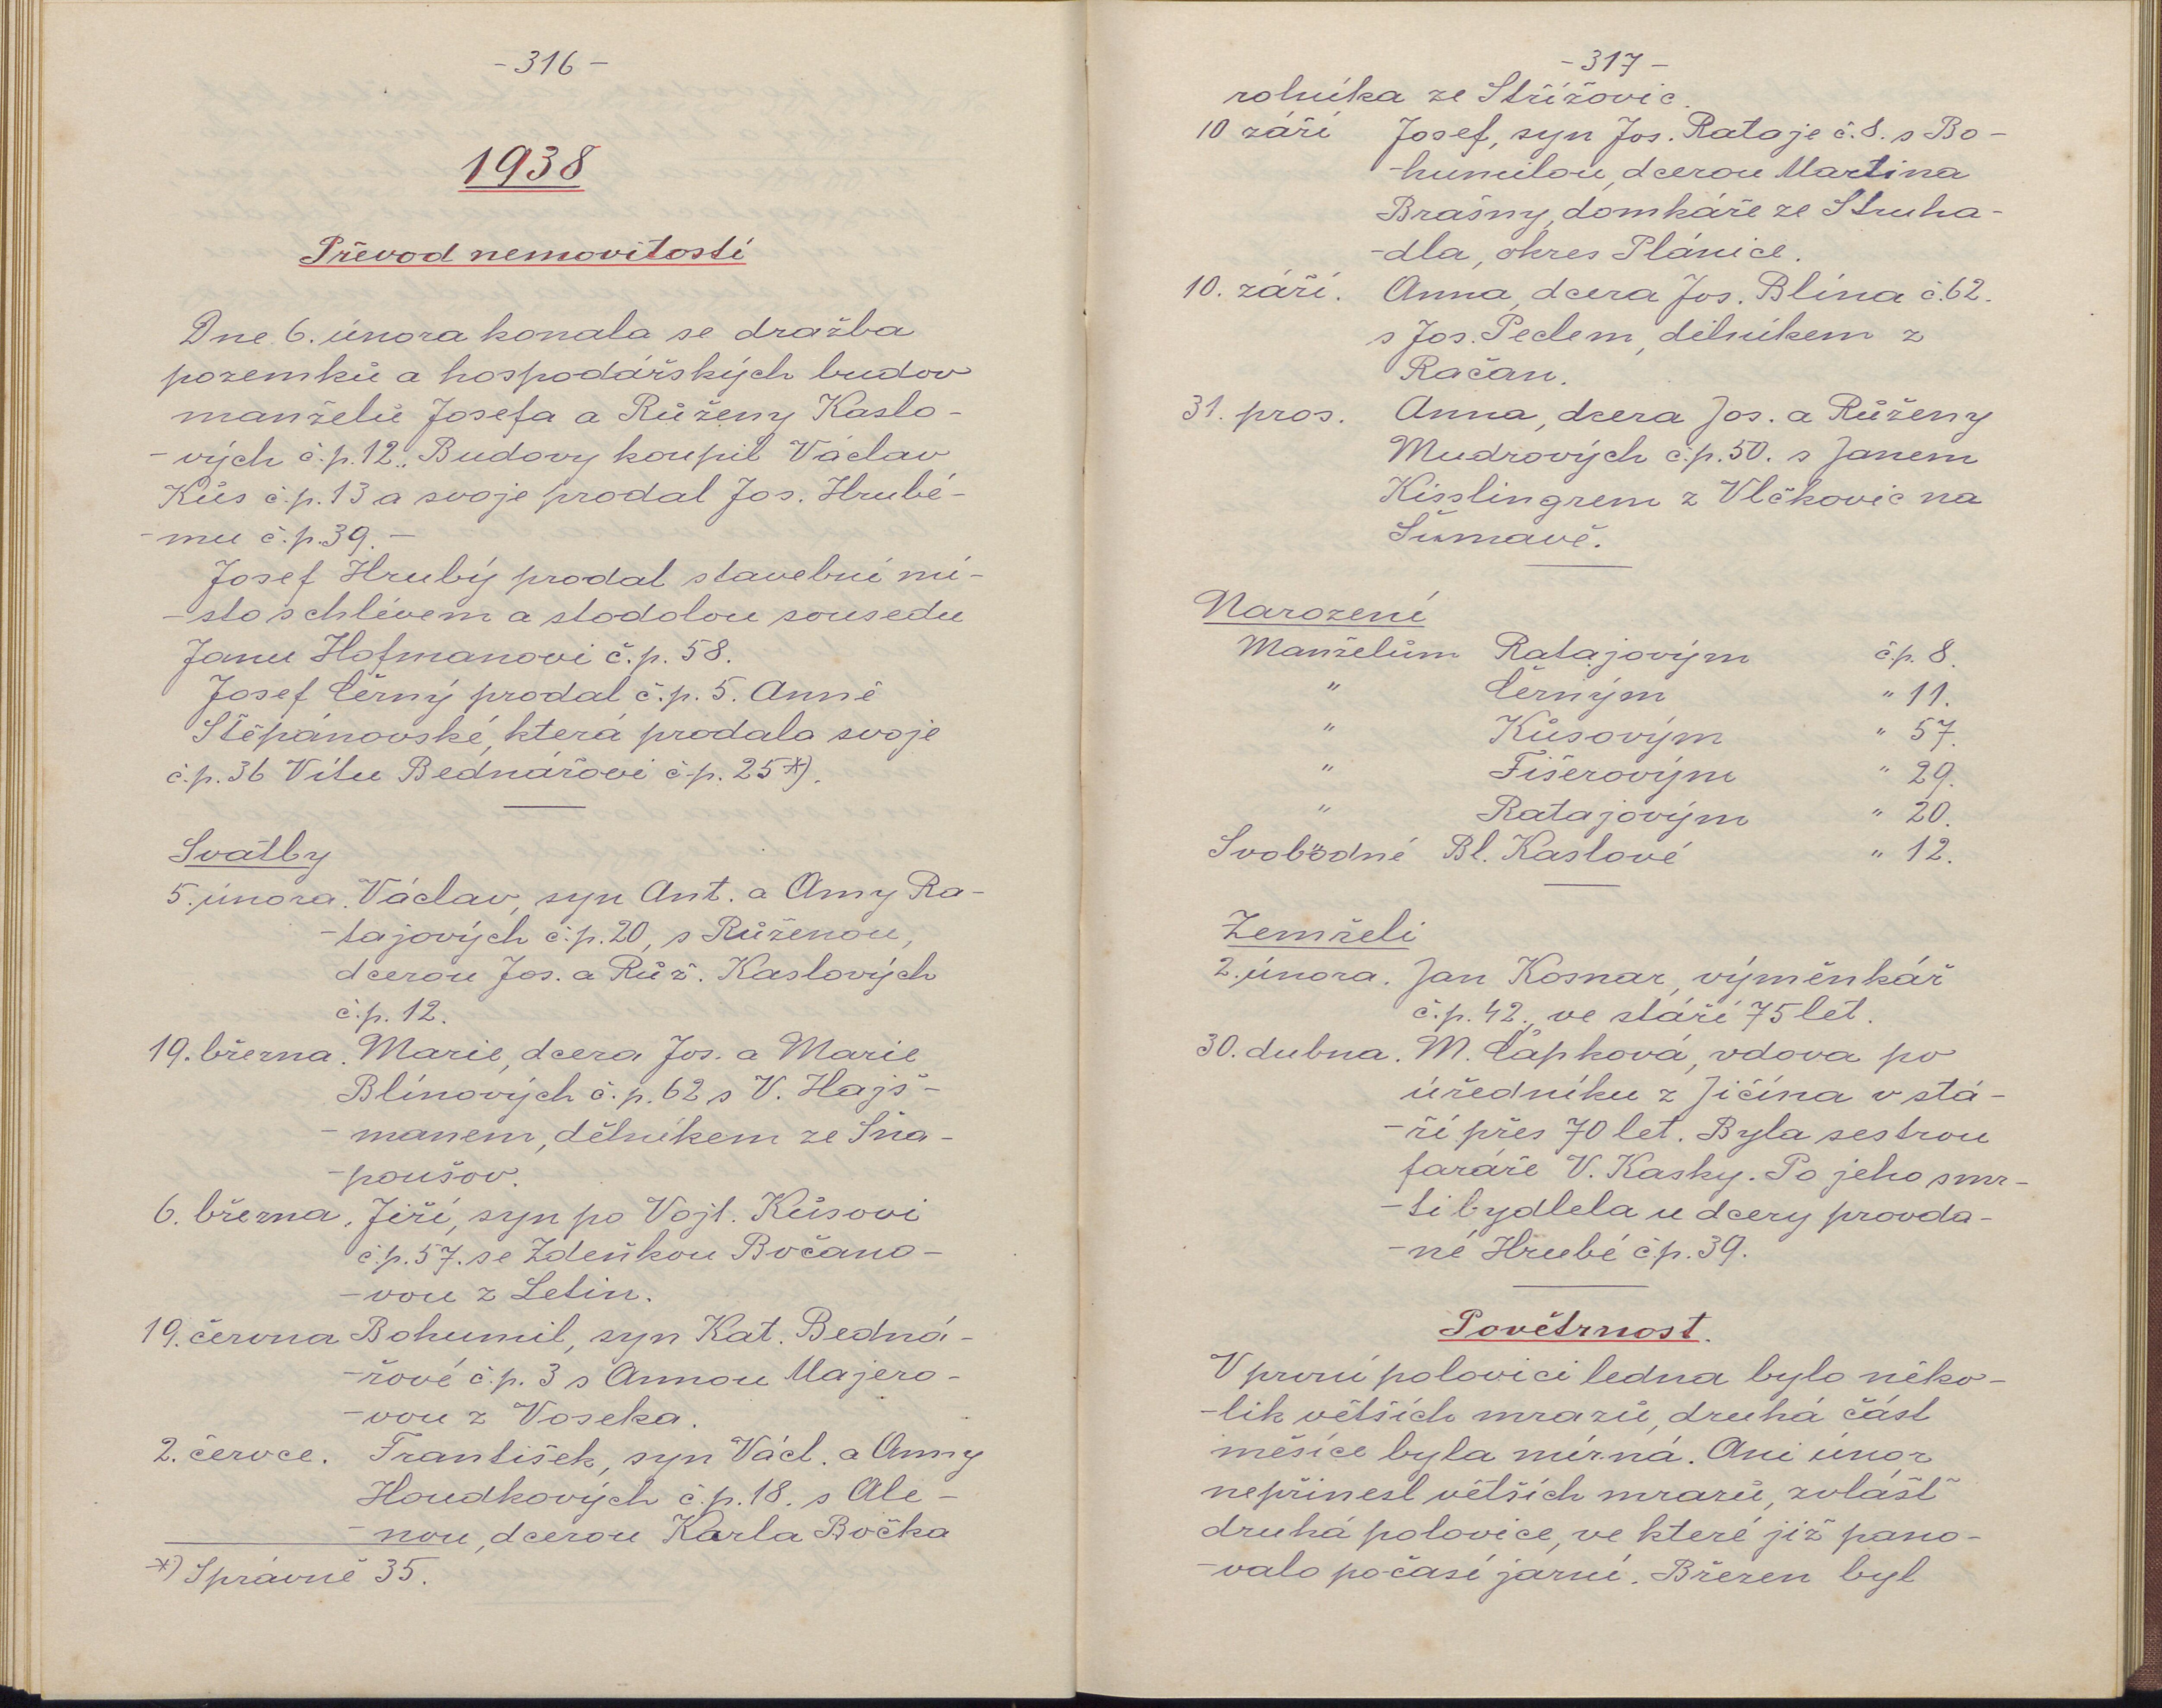 - 316 -
1938
Převod nemovitostí
Dne 6. února konala se dražba
pozemků a hospodářských budov
manželů Josefa a Růženy Kaslo-
-vých č.p. 12. Budovy koupil Václav
Kůs č.p. 13 a svoje prodal Jos. Hrubé-
-mu č.p. 39. -
Josef Hrubý prodal stavební mí-
-sto s chlévem a stodolou sousedu
Janu Hofmanovi č.p. 58.
Josef Černý prodal č.p. 5. Anně
Štěpánovské, která prodala svoje
č.p. 36 Vítu Bednářovi č.p. 25 *).
Svatby
5. února. Václav, syn Ant. a Anny Ra-
-tajových č.p. 20, s Růženou,
dcerou Jos. a Růž. Kaslových
č.p. 12.
19. března. Marie, dcera Jos. a Marie
Blínových č.p. 62 s V. Hajš-
-manem, dělníkem ze Sna-
-poušov.
6. března. Jiří, syn po Vojt. Kůsovi
č.p. 57. se Zdeňkou Bočano-
-vou z Letin.
19. června Bohumil, syn Kat. Bedná-
-řové č.p. 3 s Annou Majero-
-vou z Voseka.
2. července. František, syn Václ. a Anny
Houdkových č.p. 18. s Ale-
-nou, dcerou Karla Bočka
*) Správně 35.
- 317 -
rolníka ze Střížovic.
10 září Josef, syn Jos. Rataje č. 8. s Bo-
-humilou, dcerou Martina
Brašny, domkáře ze Struha-
-dla, okres Plánice.
10. září. Anna, dcera Jos. Blína č. 62.
s Jos. Peclem, dělníkem z
Račan.
31. pros. Anna, dcera Jos. a Růženy
Mudrových č.p. 50. s Janem
Kisslingrem z Vlčkovic na
Šumavě.
Narození
Manželům Ratajovým č.p. 8.
" Černým " 11.
" Kůsovým " 57.
" Fišerovým " 29.
" Ratajovým " 20.
Svobodné Bl. Kaslové " 12.
Zemřeli
2. února. Jan Kosnar, výměnkář
č.p. 42., ve stáří 75 let.
30. dubna. M. Čapková, vdova po
úředníku z Jičína v stá-
-ří přes 70 let. Byla sestrou
faráře V. Kasky. Po jeho smr-
-ti bydlela u dcery provda-
-né Hrubé č.p. 39.
Povětrnost.
V první polovici ledna bylo něko-
-lik větších mrazů, druhá část
měsíce byla mírná. Ani únor
nepřinesl větších mrazů, zvlášť
druhá polovice, ve které již pano-
-valo počasí jarní. Březen byl